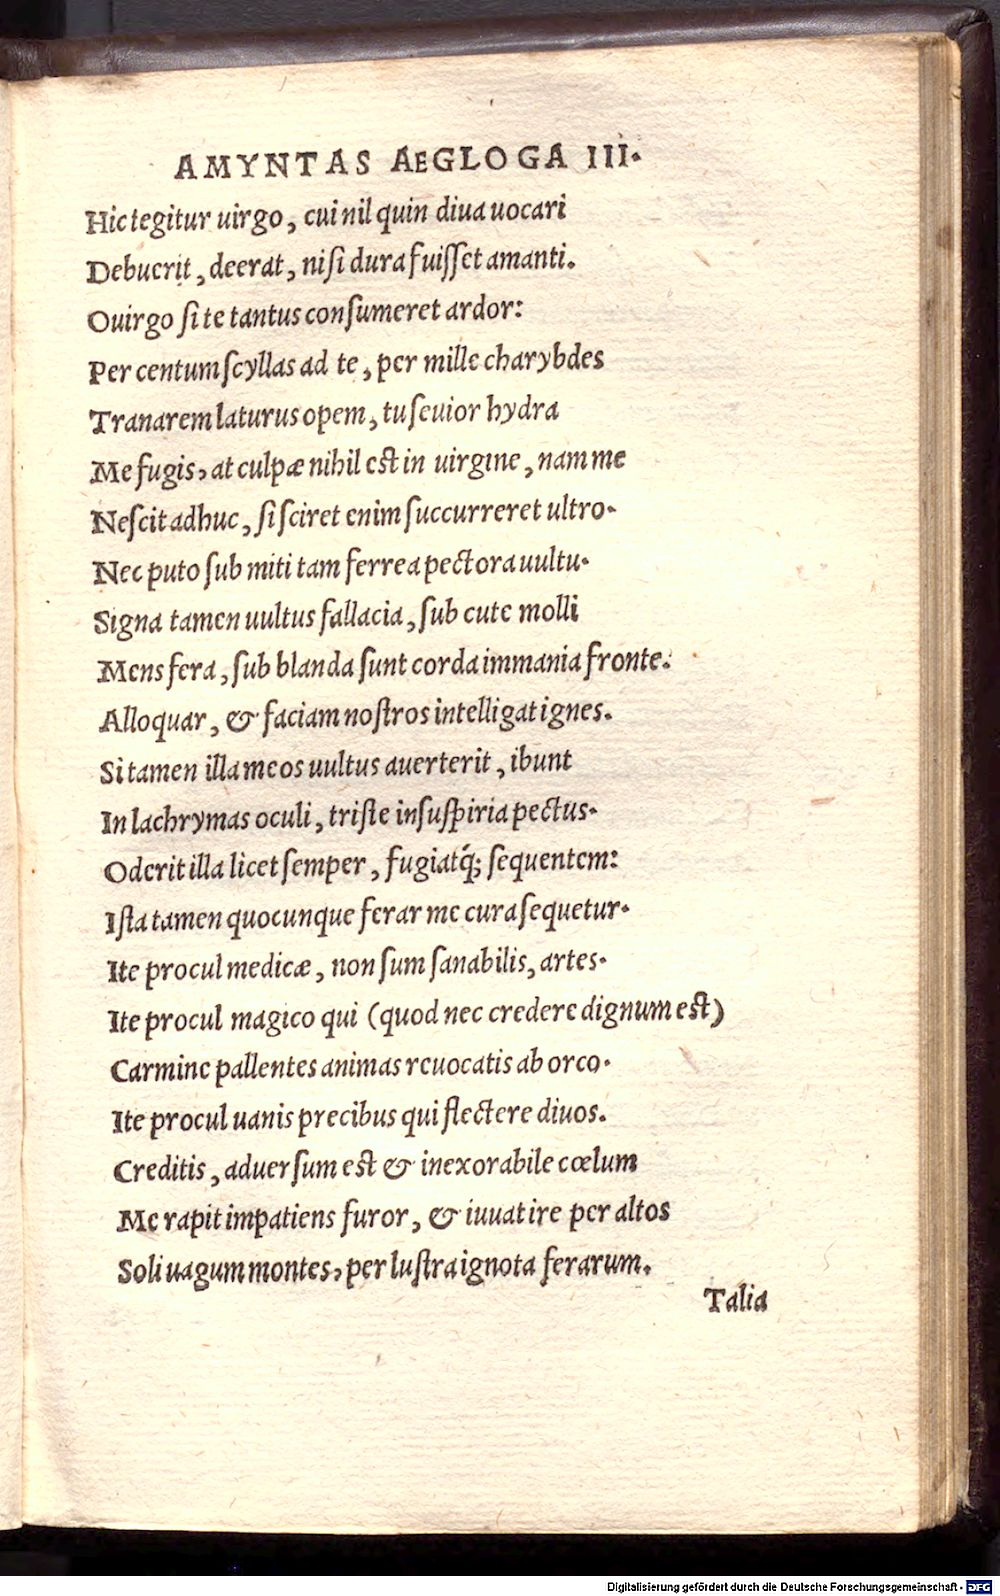 AMYNTAS AEGLOGA III.
Hic tegitur uirgo, cui nil quin diua uocari
Debuerit, deerat, nisi dura fuisset amanti.
O uirgo si te tantus consumeret ardor:
Per centum scyllas ad te, per mille charybdes
Tranarem laturus opem, tu seuior hydra
Me fugis, at culpæ nihil est in uirgine, nam me
Nescit adhuc, si sciret enim succurreret ultro.
Nec puto sub miti tam ferrea pectora uultu.
Signa tamen uultus fallacia, sub cute molli
Mens fera, sub blanda sunt corda immania fronte.
Alloquar, & faciam nostros intelligat ignes.
Si tamen illa meos uultus auerterit, ibunt
In lachrymas oculi, triste in suspiria pectus.
Oderit illa licet semper, fugiatq́; sequentem:
Ista tamen quocunque ferar me cura sequetur.
Ite procul medicæ, non sum sanabilis, artes.
Ite procul magico qui (quod nec credere dignum est)
Carmine pallentes animas reuocatis ab orco.
Ite procul uanis precibus qui flectere diuos.
Creditis, aduersum est & inexorabile cœlum
Me rapit impatiens furor, & iuuat ire per altos
Soliuagum montes, per lustra ignota ferarum.
Talia
Digitalisierung gefördert durch die Deutsche Forschungsgemeinschaft - DFG